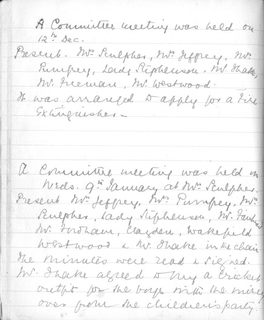 A Committee meeting was held on
12th Dec.
Present. Mrs Sculpher, Mrs Jeffrey, Mrs
Pumfrey, Lady Stephenson. Mr Thake,
Mr Freeman, Mr Westwood.
It was arranged to apply for a Fire
Extinguisher.
A Committee meeting was held on
Weds. 9th January at Mrs Sculpher.
Present Mrs Jeffrey, Mrs Pumfrey, Mrs
Sculpher, Lady Stephenson, Mr
Mr Fordham, Claydon, Wakefield
Westwood & Mr Thake in the chair
The minutes were read & signed.
Mr Thake agreed to buy a cricket
outfit for the boys with the money
over from the children's party